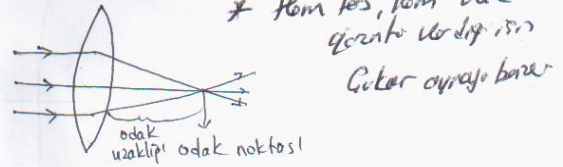 * Hem ters, hem
görüntü verdiği için
Çukur aynaya benzer
odak
uzaklığı odak noktası